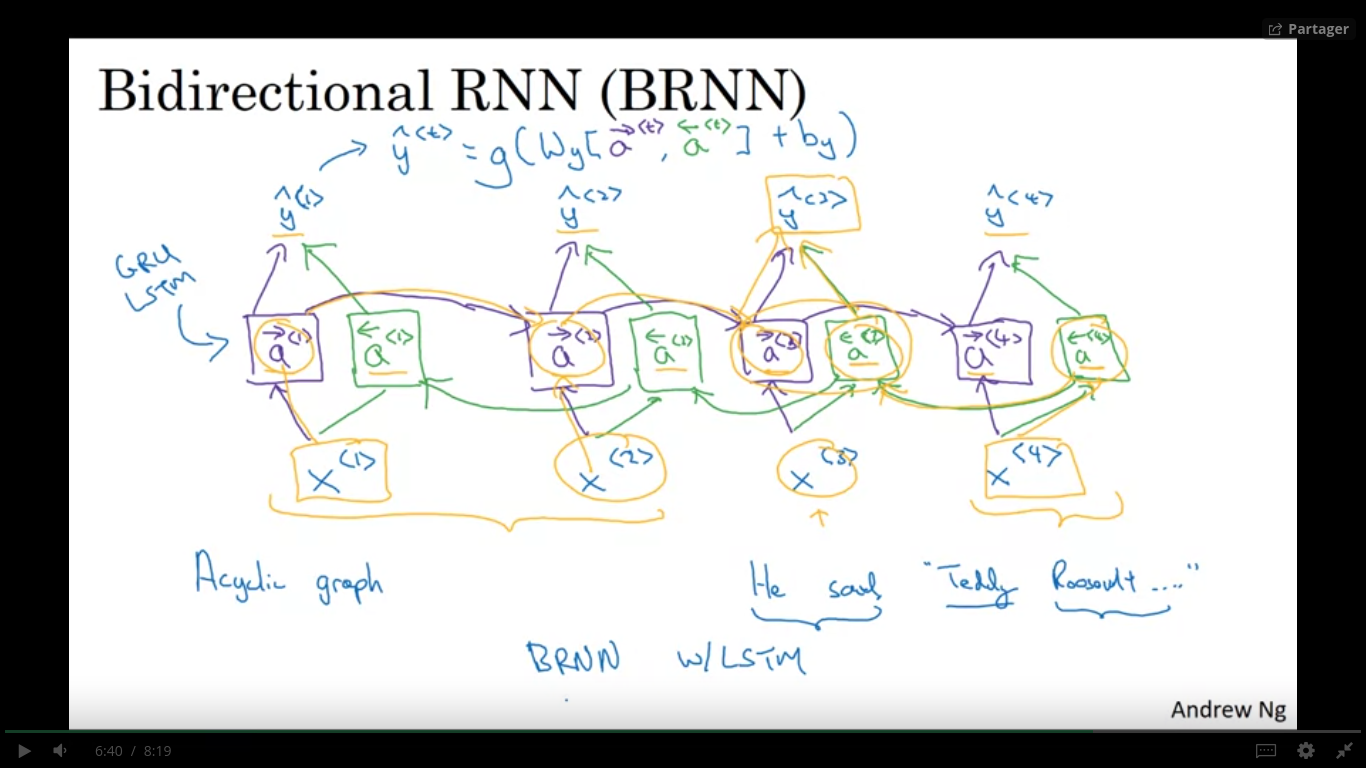 Partager
Bidirectional RNN (BRNN)
ŷ<t> = g(Wy[a→<t>, a←<t>] + by)
ŷ<1> ŷ<2> ŷ<3> ŷ<4>
GRU
LSTM
a→<1> a←<1> a→<2> a←<2> a→<3> a←<3> a→<4> a←<4>
x<1> x<2> x<3> x<4>
Acyclic graph
He said, "Teddy Roosevelt ...."
BRNN w/LSTM
Andrew Ng
6:40 / 8:19